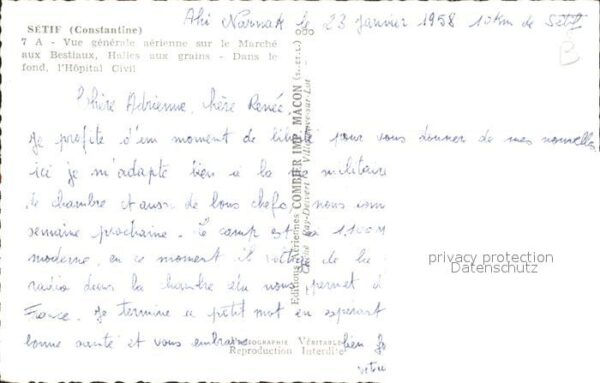 SÉTIF (Constantine)
7 A - Vue générale aérienne sur le Marché
aux Bestiaux, Halles aux grains - Dans le
fond, l'Hôpital Civil
le 23 Janvier 1958 10 km de Sétif
B
Chère Adrienne, chère Renée
Je profite d'un moment de liberté pour vous donner de mes nouvelles
ici je m'adapte bien à la vie militaire
de chambre et aussi de bons chefs nous
semaine prochaine. Le camp est à 1.100 M
moderne, en ce moment il
radio dans la chambre cela nous permet d
France. Je termine ce petit mot en espérant
bonne santé et vous embrasse bien fo
votre
Editions Aériennes COMBIER IMP. MACON (S.-et-L.)
Reproduction Interdite
privacy protection
Datenschutz